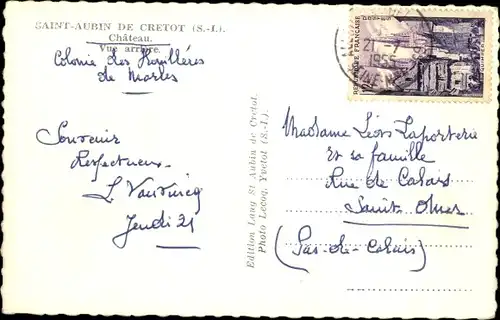 SAINT-AUBIN DE CRETOT (S.-I.).
Château.
Vue arrière.
Colonie des Houillères
de Marles
Souvenir
Respectueux
Jeudi 21
Edition Lucq St-Aubin de Cretot.
Photo Lecoq, Yvetot (S.-I.).
21-7
1955
REPUBLIQUE FRANÇAISE
POSTES
QUIMPER
Madame Léon Laporterie
et sa famille
Rue de Calais
Saint Omer
(Pas-de-Calais)